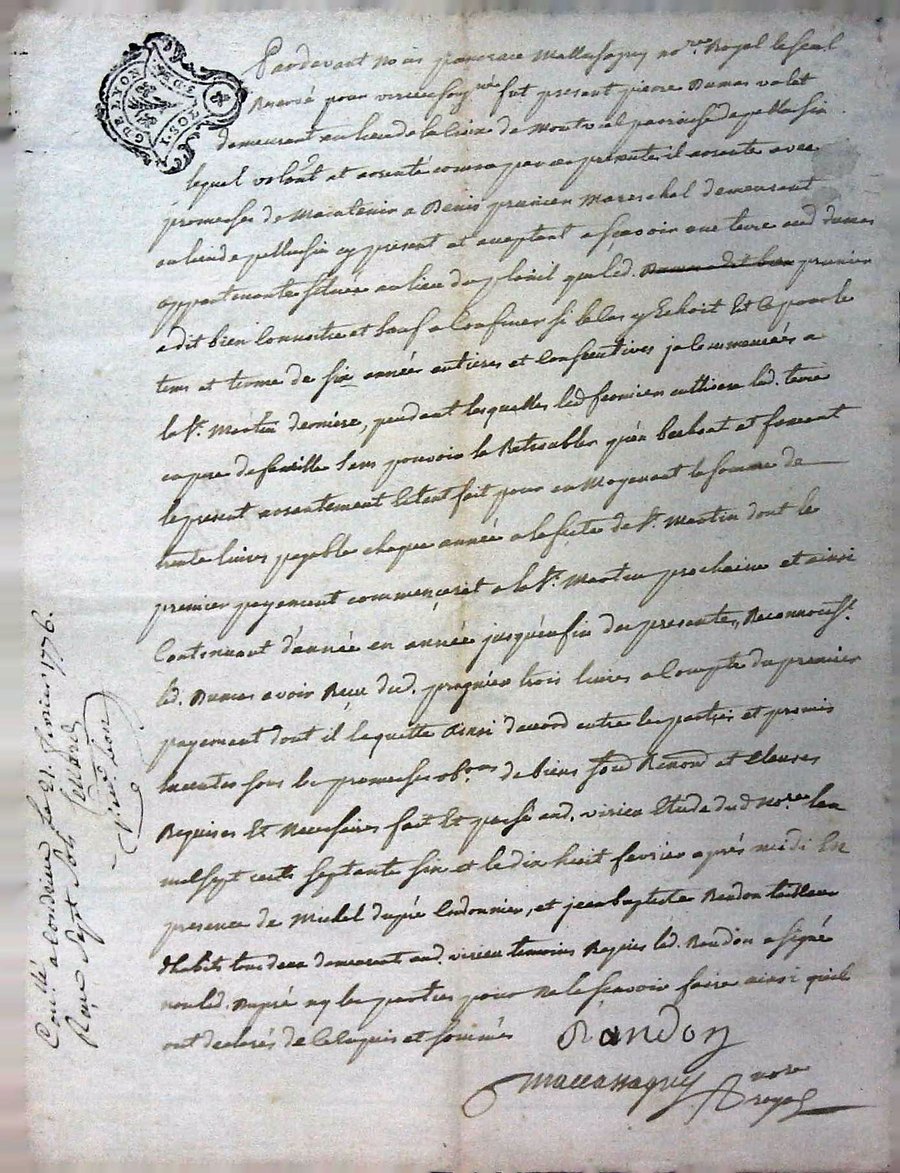 G. DE LYON
1. SOL 8. D.
Pardevant Nous pancrace Mallassagny nore. Royal le seul
Reservé pour virieu soussigné fut present pierre Dumas valet
demeurant au lieu de la de Montviol parroisse de pellussin
lequel volont. et assenté comme par ce presente il assente avec
promesses de Maintenir a Denis prunier Mareschal demeurant
au lieu de pellussin cy present et aceptant asçavoir une terre aud. dumas
appartenante scituée au lieu du que led. Dumas a dit bien prunier
a dit bien connoitre et sauf a Confiner si le cas y Echoit Et ce pour le
tems et terme de six année entieres et Consécutives ja commencées a
la St. Martin derniere, pendant lesquelles led. fermier cultivera lad. terre
en pere de famille sans pouvoir la Retroubler qu'en et faisant
le present assentement Estant fait pour en Moyenant la somme de
trente livres payable chaque année a la feste de St. Martin dont le
premier payement commencerat a la St. Martin prochaine et ainsi
Continuant d'année en année jusqu'en fin des presente, Reconnoiss.
led. Dumas avoir Reçu dud. prugnier trois livres a Compte du premier
payement dont il le quitte Ainsi dacord entre les parties et promis
sous les promesses obons. de biens Renond et Clauses
Requises Et Necessaires fait Et passé aud. virieu Etude dud. Nore. lan
mil sept cents septante six et le dix huit fevrier après midi En
presence de Michel dupré Cordonnier, et jean baptiste Randon tailleur
d'habits tous deux demeurant aud. virieu temoins Requis led. Randon a signé
non led. dupré ny les parties pour ne le sçavoir faire ainsi quils
ont declarés de ce Enquis et sommés
Randon
Mallassagny nore
royal
Con.lé a Condrieu le 21. fevrier 1776.
Reçu sept sols